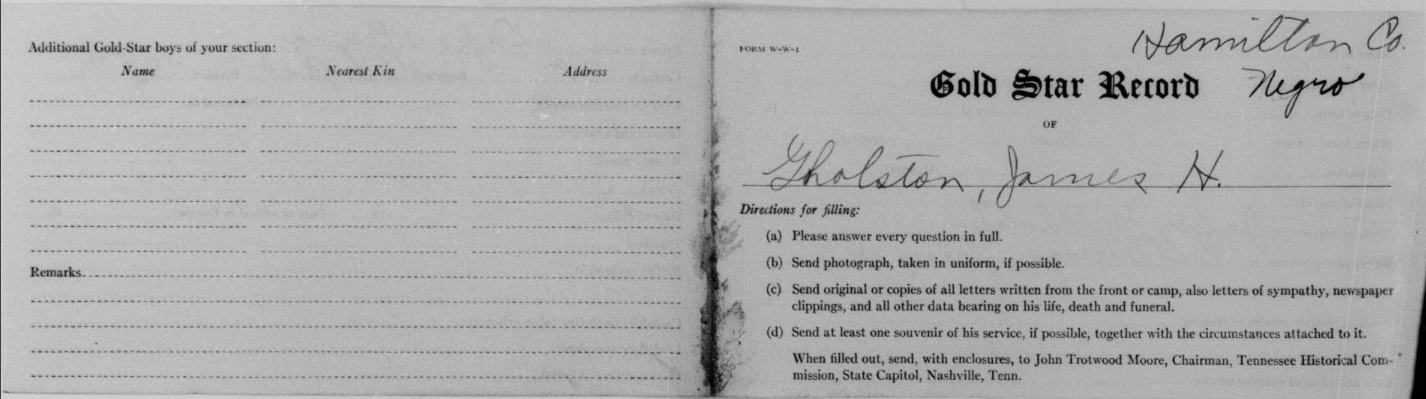 Additional Gold-Star boys of your section:
Name Nearest Kin Address
Remarks
FORM W-W-1
Hamilton Co.
Negro
Gold Star Record
OF
Gholston, James H.
Directions for filling:
(a) Please answer every question in full.
(b) Send photograph, taken in uniform, if possible.
(c) Send original or copies of all letters written from the front or camp, also letters of sympathy, newspaper
clippings, and all other data bearing on his life, death and funeral.
(d) Send at least one souvenir of his service, if possible, together with the circumstances attached to it.
When filled out, send, with enclosures, to John Trotwood Moore, Chairman, Tennessee Historical Com-
mission, State Capitol, Nashville, Tenn.